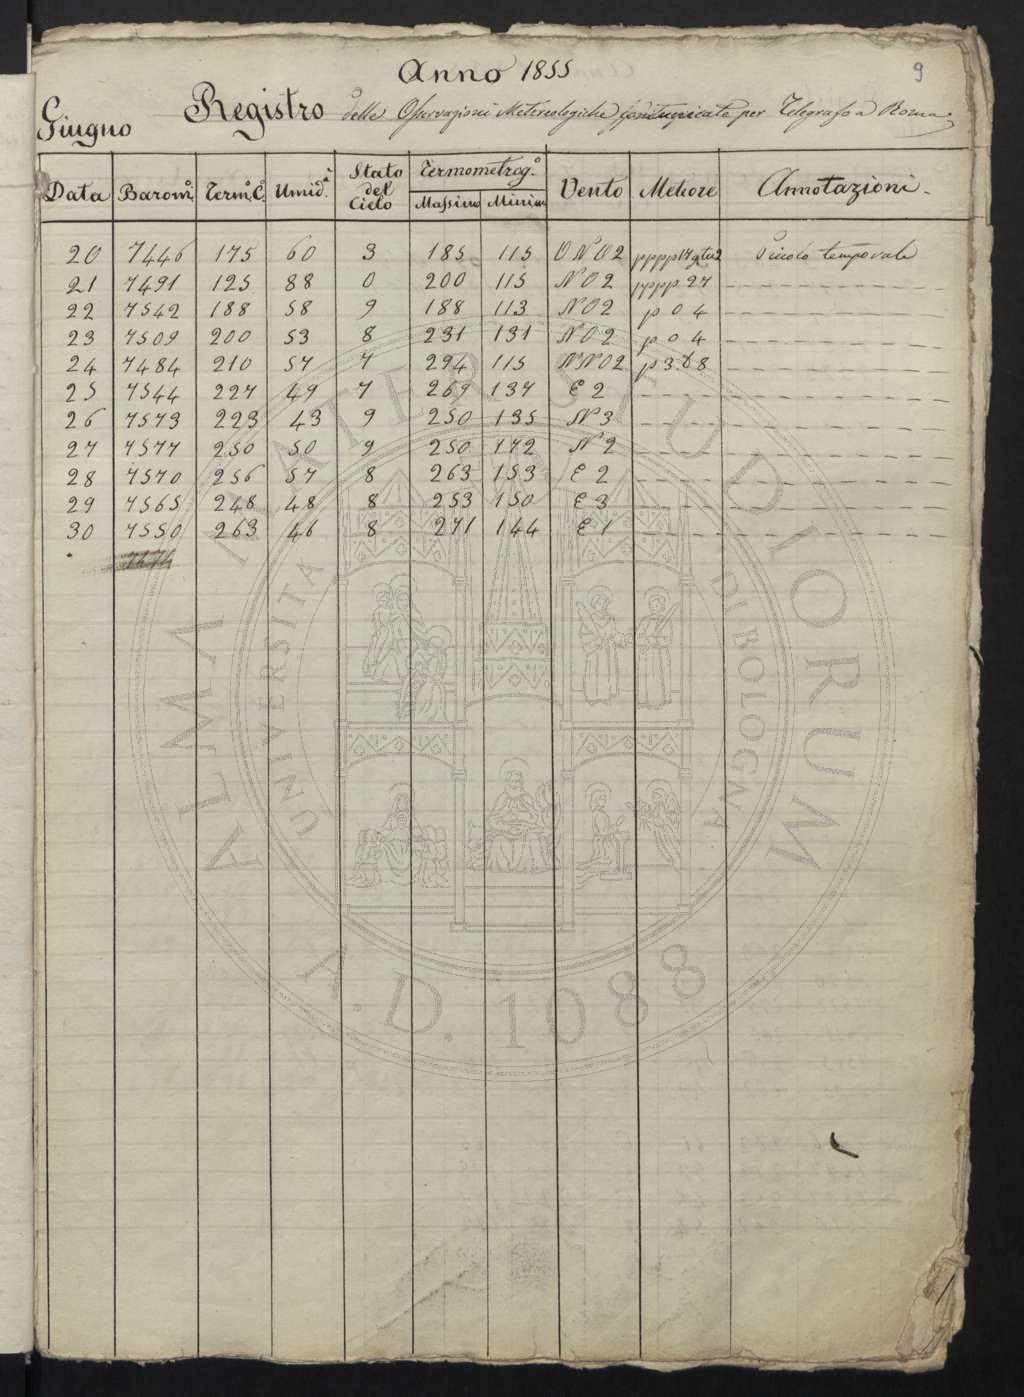 Anno 1855
9
Giugno
Registro delle Osservazioni Metereologiche comunicate per Telegrafo a Roma
Data Barom. Term. C. Umid. Stato del Cielo Termometrog. Massimo Minimo Vento Meteore Annotazioni
20 7446 175 60 3 185 115 ONO2 pppp17 Piccolo temporale
21 7491 125 88 0 200 115 NO2 pppp 27
22 7542 188 58 9 188 113 NO2 p 0 4
23 7509 200 53 8 231 131 NO2 p 0 4
24 7484 210 57 7 294 115 NNO2 p 3 8
25 7544 227 49 7 269 137 E 2
26 7573 223 43 9 250 135 N 3
27 7577 250 50 9 250 172 N 2
28 7570 256 57 8 263 153 E 2
29 7565 248 48 8 253 150 E 3
30 7550 263 46 8 271 144 E 1
ALMA MATER STUDIORUM
UNIVERSITÀ DI BOLOGNA
A.D. 1088